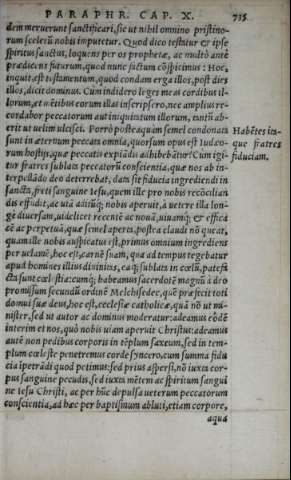 PARAPHR. CAP. X. 735
dem meruerunt sanctificari, sic ut nihil omnino pristino-
rum scelerū nobis imputetur. Quod dico testatur & ipse
spiritus sanctus, loquens per os prophetæ, ac multò antè
prædicens futurum, quod nunc factum cōspicimus: Hoc,
inquit, est testamentum, quod condam erga illos, post dies
illos, dicit dominus. Cum indidero leges meas cordibus il-
lorum, et mētibus eorum illas inscripsero, nec amplius re-
cordabor peccatorum aut iniquitatum illorum, tantū ab-
erit ut uelim ulcisci. Porrò posteaquàm semel condonata
sunt in æternum peccata omnia, quorsum opus est Iudæo-
rum hostijs, quæ peccatis expiādis adhibebātur? Cum igi-
tur fratres sublata peccatorū conscientia, quæ nos ab in-
terpellādo deo deterrebat, data sit fiducia ingrediendi in
sancta, freti sanguine Iesu, quem ille pro nobis recōcilian
dis effudit, ac uiā aditūq; nobis aperuit, à uetere illa lon-
gè diuersam, uidelicet recentē ac nouā, uiuamq; & efficā
cē ac perpetuā, quæ semel aperta, postea claudi nō queat,
quam ille nobis auspicatus est, primus omnium ingrediens
per uelamē, hoc est, carnē suam, qua ad tempus tegebatur
apud homines illius diuinitas, eaq; sublata in cœlū, patefa
cta sunt cœlestia: cumq; habeamus sacerdotē magnū à deo
promissum secundū ordinē Melchisedec, quē præfecit toti
domui suæ deus, hoc est, ecclesiæ catholicæ, quā nō ut mi-
nister, sed ut autor ac dominus moderatur: adeamus eòdē
interim et nos, quò nobis uiam aperuit Christus: adeamus
autē non pedibus corporis in tēplum saxeum, sed in tem-
plum cœleste penetremus corde syncero, cum summa fidu
cia ipetrādi quod petimus: sed prius aspersi, nō iuxta cor-
pus sanguine pecudis, sed iuxta mētem ac spiritum sangui
ne Iesu Christi, ac per hūc depulsa ueterum peccatorum
conscientia, ad hæc per baptismum abluti, etiam corpore,
aqua
Habētes ita-
que fratres
fiduciam,